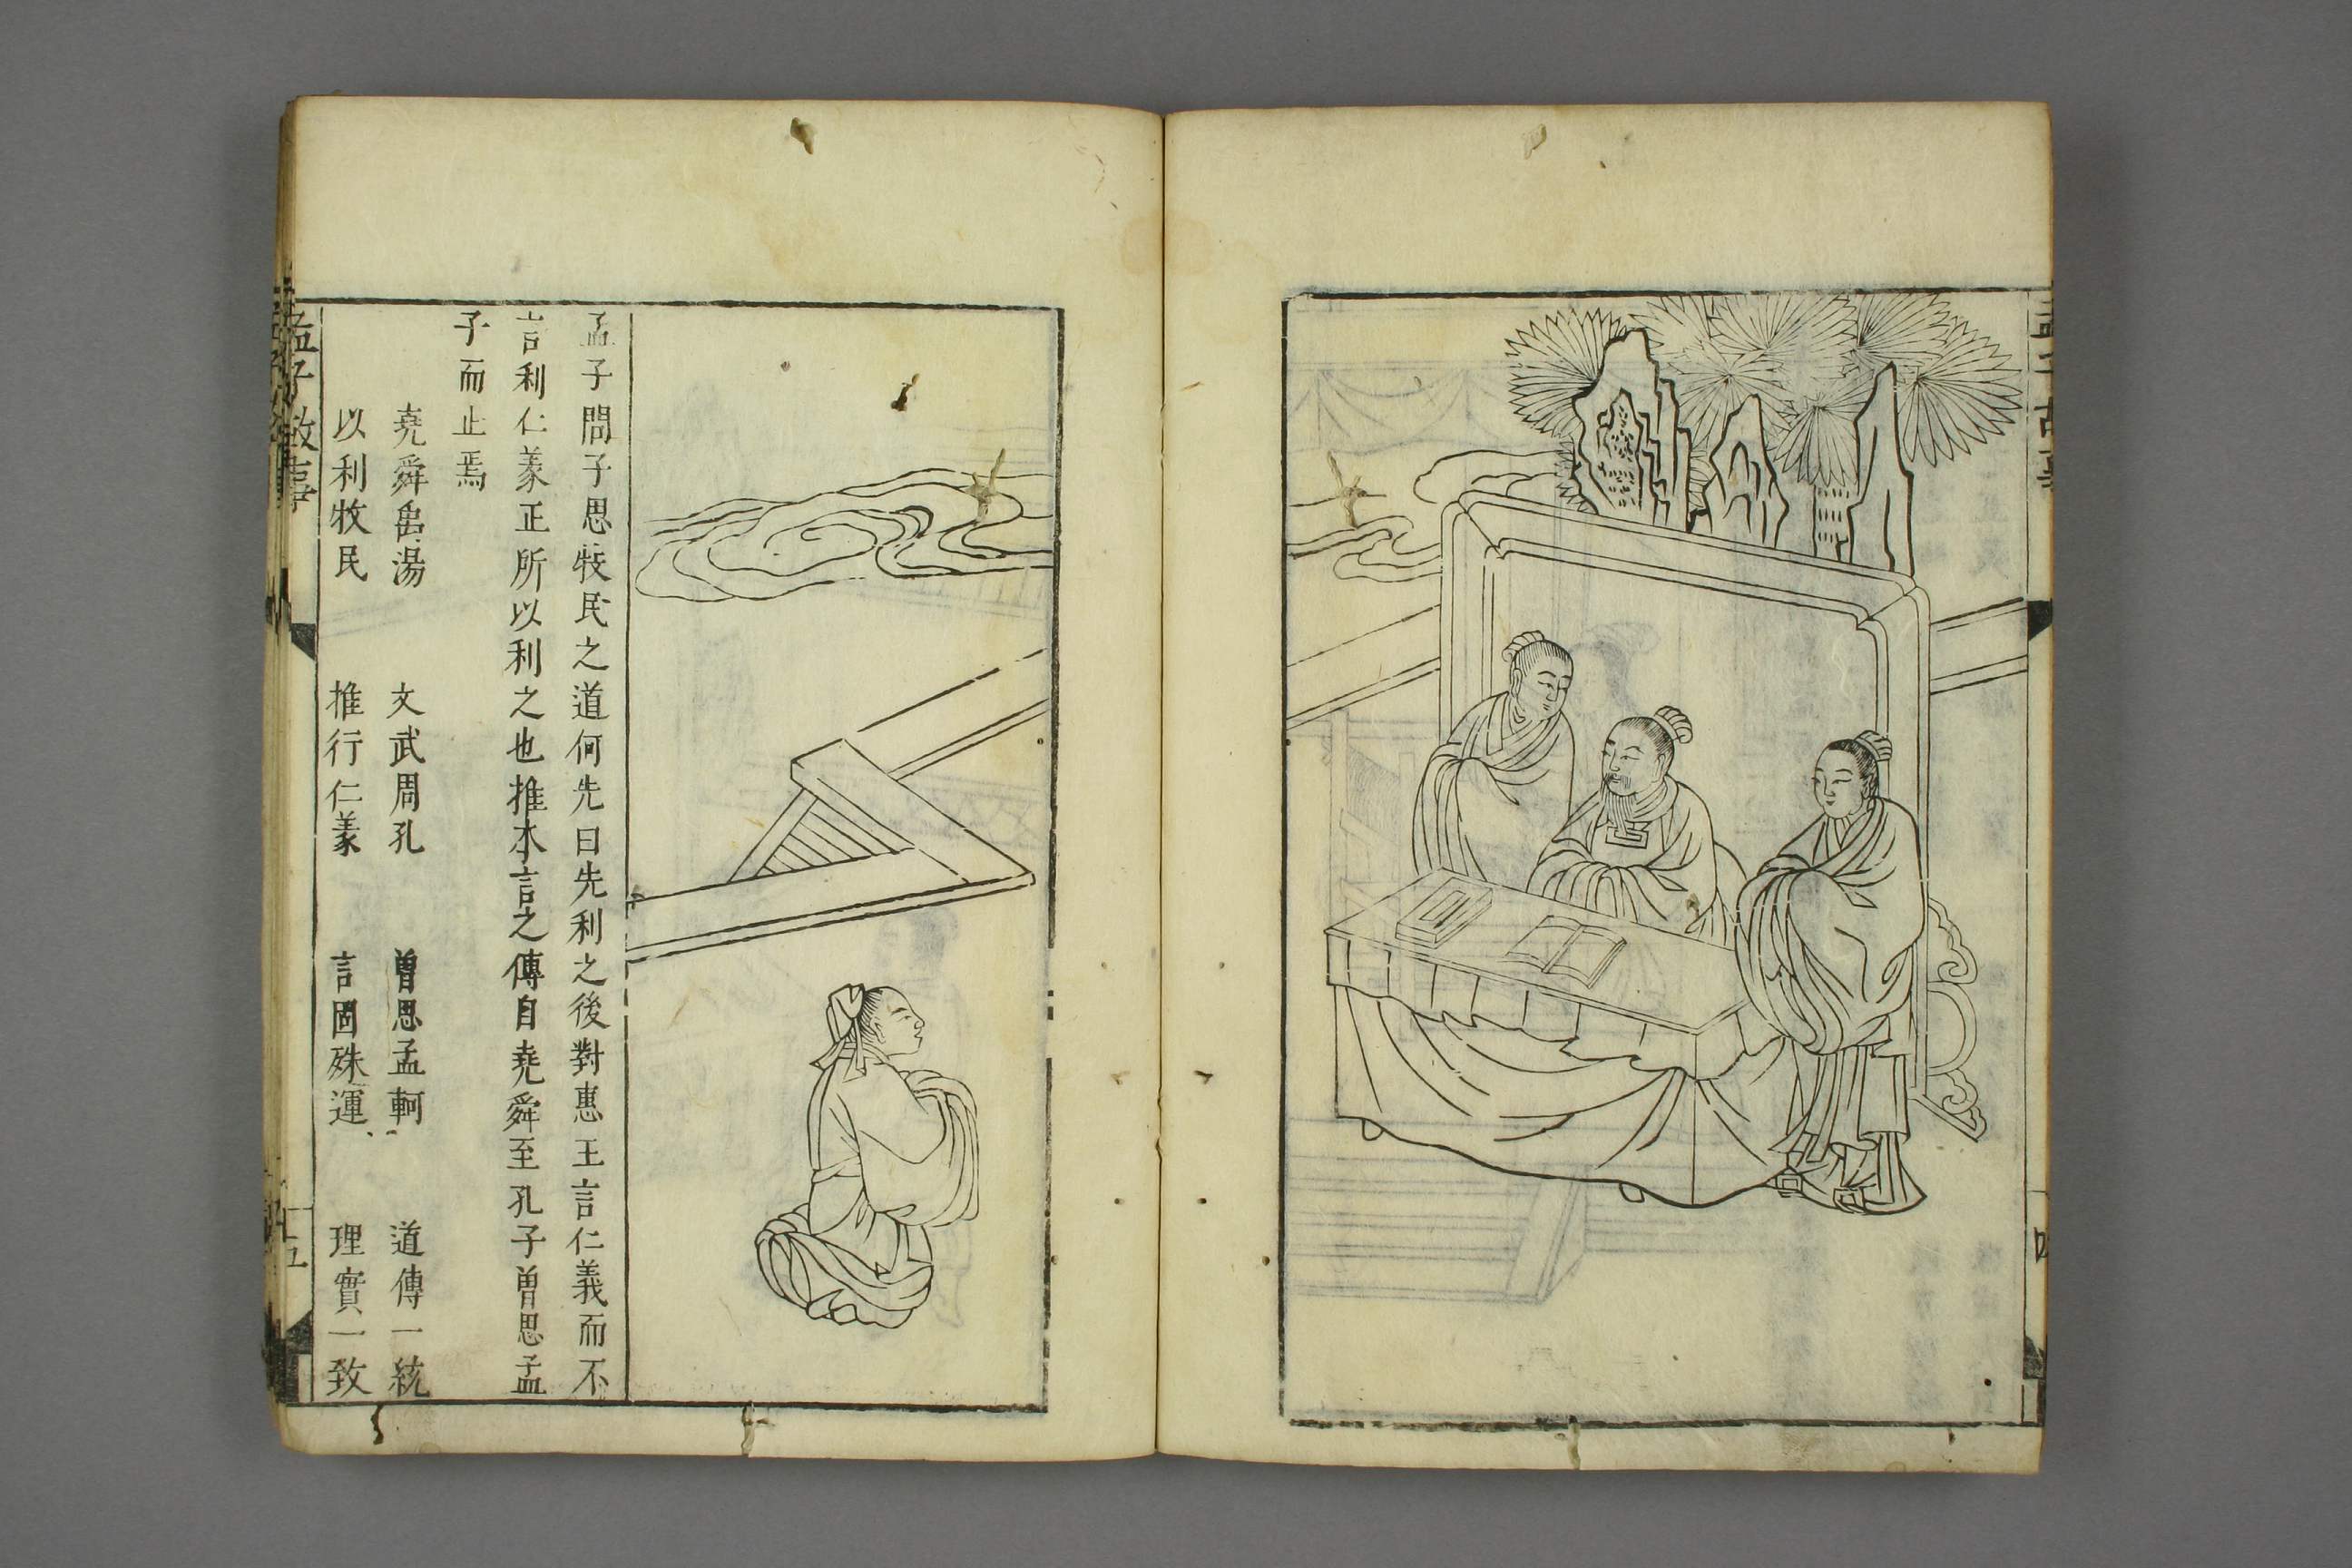 孟子問子思牧民之道何先曰先利之後對惠王言仁義而不
言利仁義正所以利之也推本言之傳自堯舜至孔子曽思孟
子而止焉
堯舜禹湯　文武周孔　曽思孟軻　道傳一統
以利牧民　推行仁義　言固殊運　理實一致
孟子故事
五